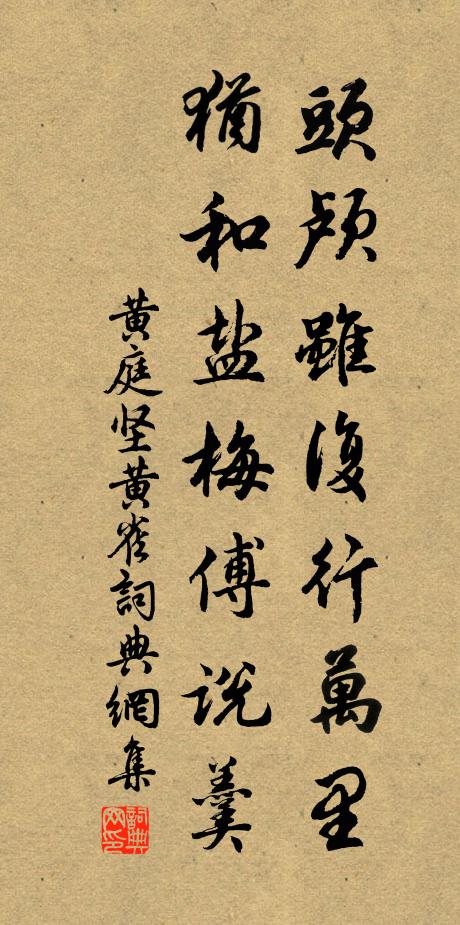 頭颅雖復行萬里
猶和盐梅傅说羹
黄庭坚黄雀詞典網集
詞典网印